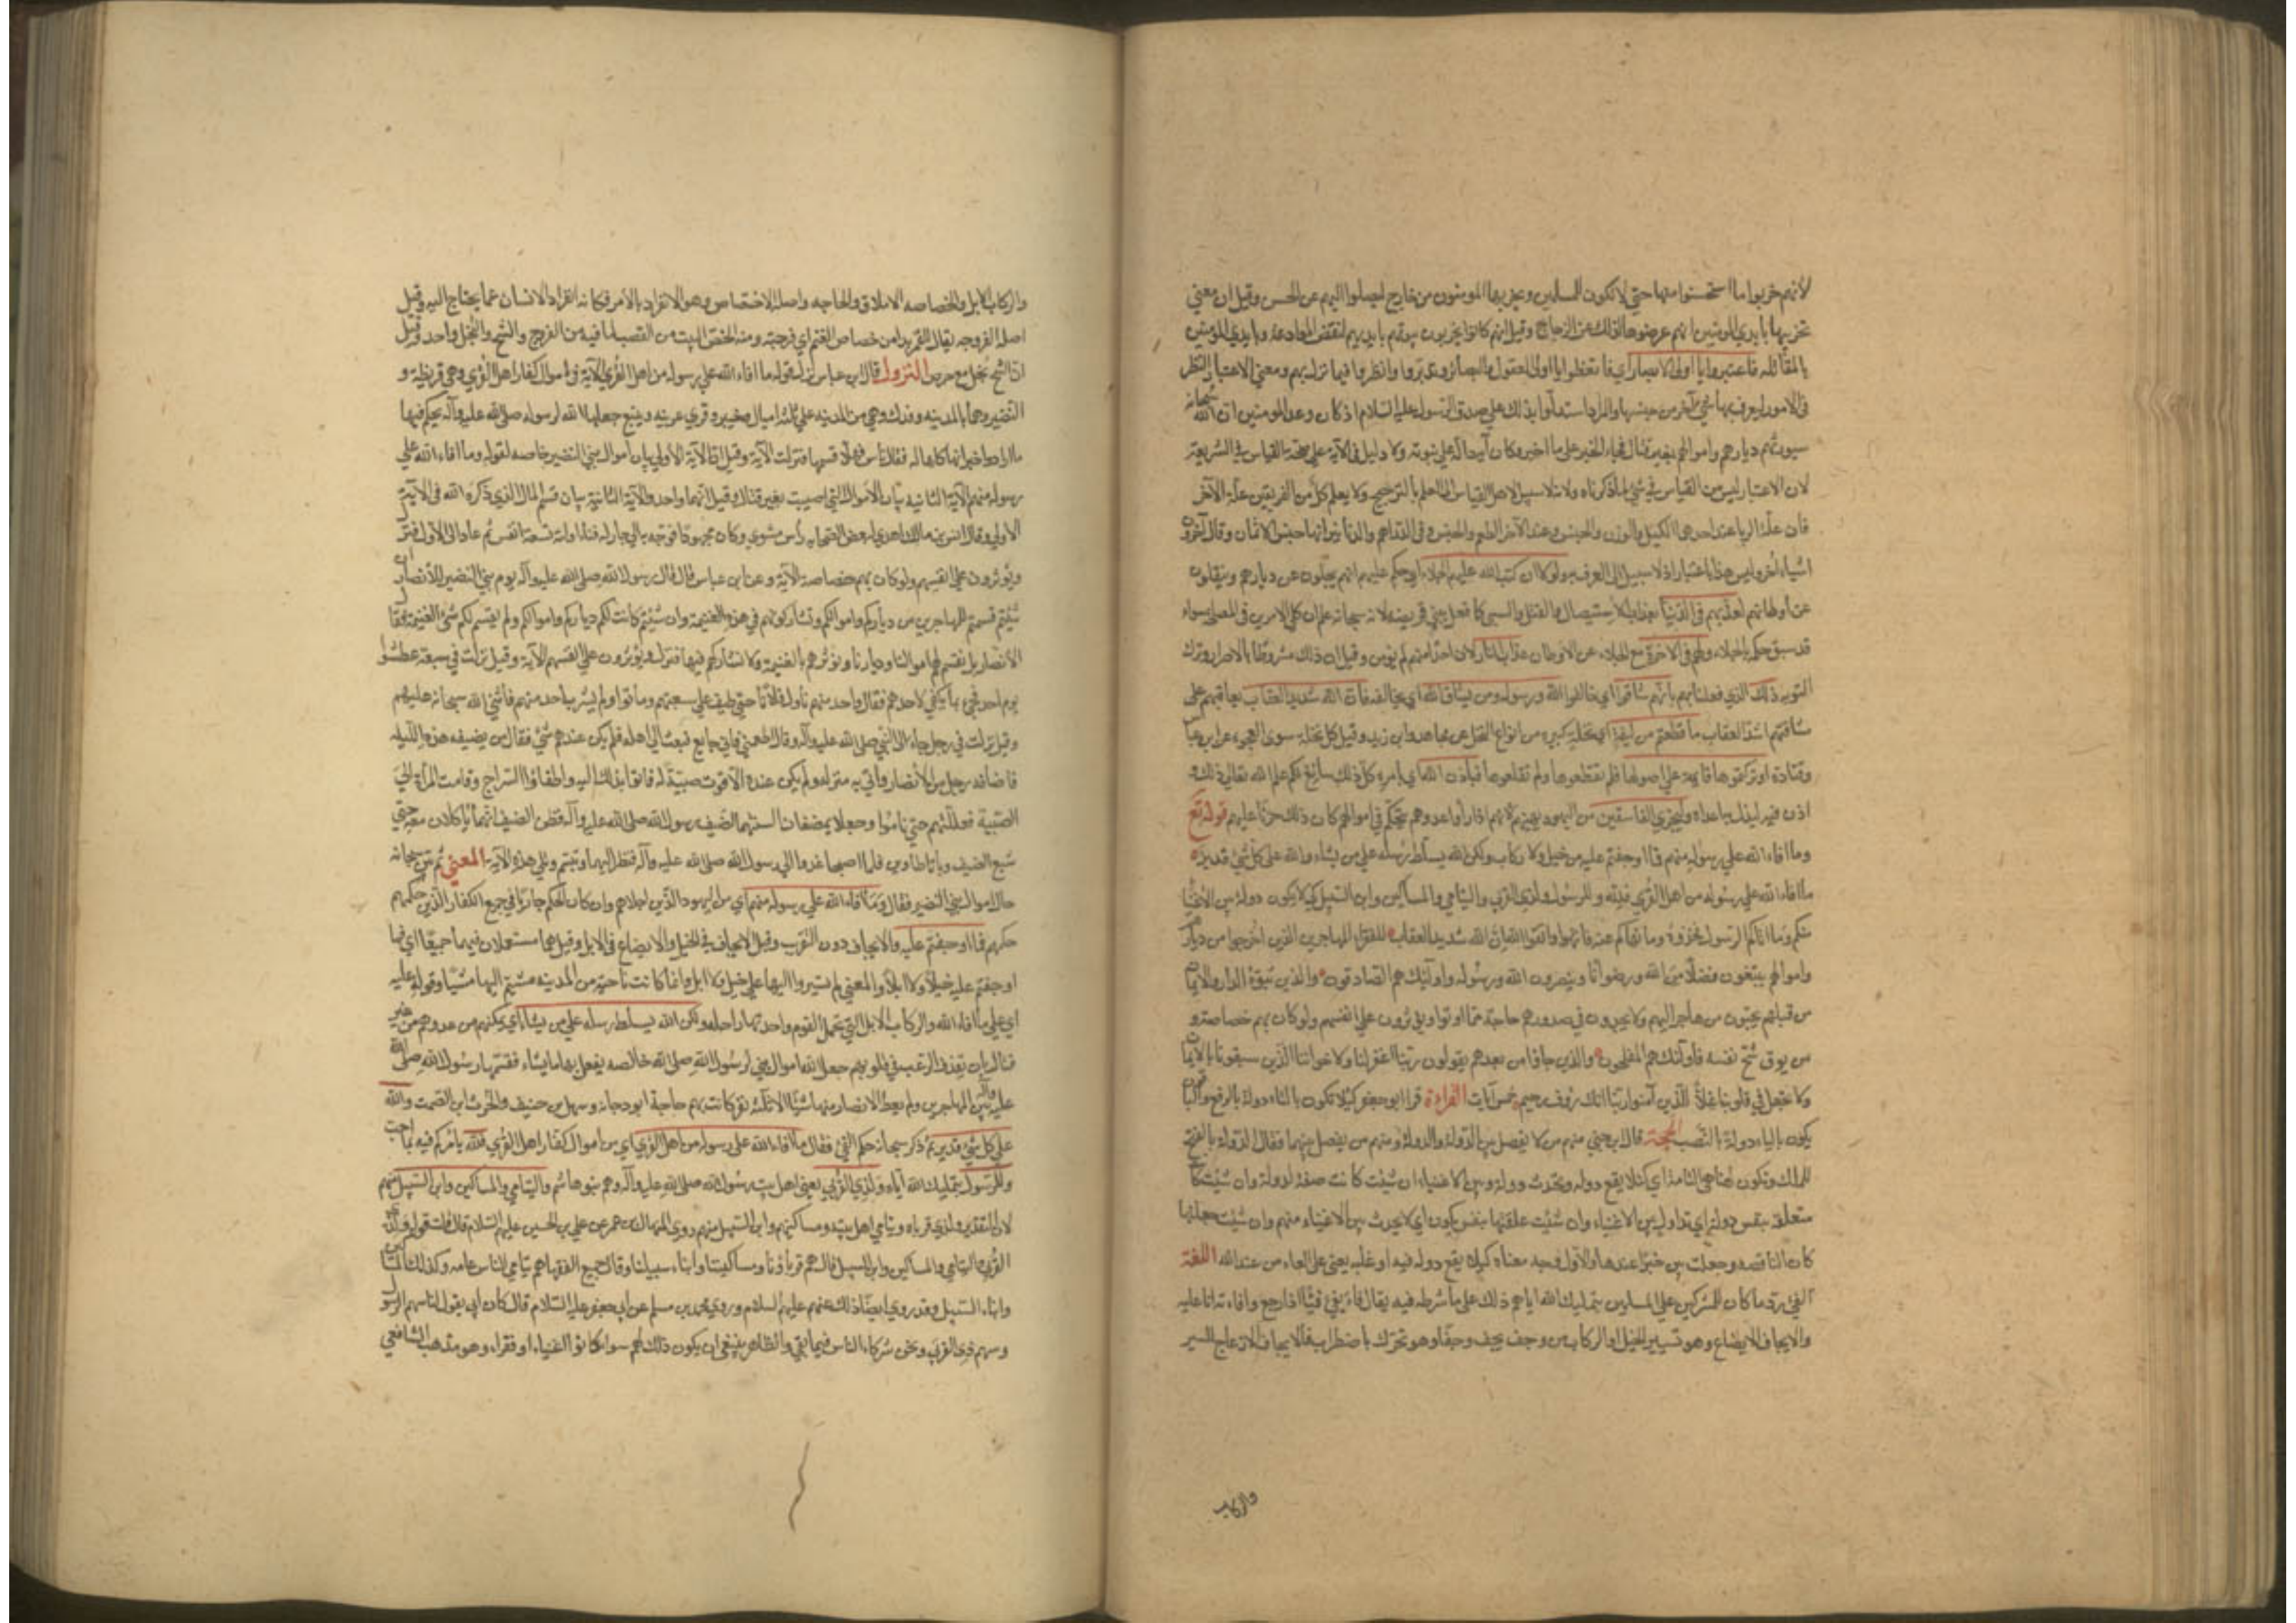 لأنهم خربوا ما استحسنوا منها حتى لا تكون للمسلمين ويخربها المومنون من خارج ليصلوا اليهم عن الحسن وقيل ان معنى
تخريبها بايدي المومنين انهم عرضوها لذلك عن الزجاج وقيل انهم كانوا يخربون بيوتهم بايديهم لنقض الموادعة وبايدي المومنين
بالمقاتلة فاعتبروا يا اولى الابصار اي فاتعظوا يا اولى العقول والبصائر وتدبروا وانظروا فيما نزل بهم ومعنى الاعتبار النظر
في الامور ليعرف بها شئ آخر من جنسها والمراد استدلوا بذلك على صدق الرسول عليه السلام اذ كان وعد المومنين ان الله سبحانه
سيورثهم ديارهم واموالهم بغير قتال فجاء المخبر على ما اخبر وكان آية دالة على نبوته ولا دليل في الآية على صحة القياس في الشريعة
لان الاعتبار ليس من القياس في شئ لما ذكرناه ولانه لا سبيل لاهل القياس الى العلم بالترجيح ولا يعلم كل من الفريقين علة الآخر
فان علة الربا عند احدهما الكيل والوزن والجنس وعند الآخر الطعم والجنس وفي الدراهم والدنانير انهما جنس الاثمان وقال آخرون
اشياء أخر وليس هذا باعتبار اذ لا سبيل الى المعرفة به ولولا ان كتب الله عليهم الجلاء اي حكم عليهم انهم يجلون عن ديارهم وينقلون
عن أوطانهم لعذبهم في الدنيا بعذاب الاستيصال او القتل والسبي كما فعل ببني قريظة لانه سبحانه علم ان كلا الامرين في المصلحة سواء
قد سبق حكمه بالجلاء ولهم في الآخرة مع الجلاء عن الاوطان عذاب النار لان احدا منهم لم يؤمن وقيل ان ذلك مشروط بالاصرار وترك
التوبة ذلك الذي فعلنا بهم بأنهم شاقوا اي خالفوا الله ورسوله ومن يشاق الله اي يخالفه فان الله شديد العقاب يعاقبهم على
مشاقتهم اشد العقاب ما قطعتم من لينة اي نخلة كريمة من انواع النخل عن مجاهد وابن زيد وقيل كل نخلة سوى العجوة عن ابن عباس
وقتادة او تركتموها قائمة على اصولها فلم تقطعوها ولم تقلعوها فبأذن الله اي بأمره كل ذلك سائغ لكم علم الله تعالى ذلك و
اذن فيه ليذل به اعداءه وليخزي الفاسقين من اليهود يهينهم لانهم اذا رأوا عدوهم يتحكم في اموالهم كان ذلك خزيا عليهم قوله تع
وما افاء الله على رسوله منهم فما اوجفتم عليه من خيل ولا ركاب ولكن الله يسلط رسله على من يشاء والله على كل شئ قدير
ما افاء الله على رسوله من اهل القرى فلله وللرسول ولذي القربى واليتامى والمساكين وابن السبيل كي لا يكون دولة بين الاغنياء
منكم وما اتاكم الرسول فخذوه وما نهاكم عنه فانتهوا واتقوا الله ان الله شديد العقاب للفقراء المهاجرين الذين اخرجوا من ديارهم
واموالهم يبتغون فضلا من الله ورضوانا وينصرون الله ورسوله واولئك هم الصادقون والذين تبوؤا الدار والايمان
من قبلهم يحبون من هاجر اليهم ولا يجدون في صدورهم حاجة مما اوتوا ويؤثرون على انفسهم ولو كان بهم خصاصة و
من يوق شح نفسه فاولئك هم المفلحون والذين جاؤا من بعدهم يقولون ربنا اغفر لنا ولاخواننا الذين سبقونا بالايمان
ولا تجعل في قلوبنا غلا للذين آمنوا ربنا انك رؤف رحيم خمس آيات القراءة قرأ ابو جعفر كيلا تكون بالتاء دولة بالرفع والباقون
يكون بالياء دولة بالنصب الحجة قال ابن جني منهم من لا يفصل بين الدولة والدولة ومنهم من يفصل بينهما فقال الدولة بالفتح
للملك وتكون هنا هي التامة اي كيلا يقع دولة وتحدث دولة وبين الاغنياء ان شئت كانت صفة لدولة وان شئت كانت
متعلقة بنفس دولة اي تداول بين الاغنياء وان شئت علقتها بنفس يكون اي لا يحدث بين الاغنياء منهم وان شئت جعلتها
كان الناقصة وجعلت بين خبرا عنها والاول اوجه معناه كيلا يقع دولة فيه او عليه يعني على المفاء من عند الله اللغة
الفئ رد ما كان للمشركين على المسلمين بتمليك الله اياهم ذلك على ما شرط فيه يقال فاء يفئ فيئا اذا رجع وافاءته انا عليه
والايجاف الايضاع وهو تسيير الخيل او الركاب من وجف يجف وجيفا وهو تحرك باضطراب فالايجاف الازعاج للسير
والركاب
والركاب الابل والخصاصة الاملاق والحاجة واصله الاختصاص وهو الانفراد بالأمر فكانه انفراد الانسان عما يحتاج اليه وقيل
اصله الفروجة يقال للقمر بدا من خصاص الغيم اي فرجته ومنه الخص البيت من القصب لما فيه من الفرج والشح والبخل واحد وقيل
ان الشح بخل مع حرص النزول قال ابن عباس نزل قوله ما افاء الله على رسوله من اهل القرى الآية في اموال كفار اهل القرى وهي قريظة و
النضير وهما بالمدينة وفدك وهي من المدينة على ثلثة اميال وخيبر وقرى عرينة وينبع جعلها الله لرسوله صلى الله عليه وآله يحكم فيها
ما اراد واخبر انها كلها له فقال ناس فهلا قسمها فنزلت الآية وقيل ان الآية الأولى بيان أموال بني النضير خاصة لقوله وما افاء الله على
رسوله منهم الآية الثانية بيان الأموال التي اصيبت بغير قتال وقيل انهما واحد والآية الثانية بيان قسم المال الذي ذكره الله في الآية
الأولى وقال انس بن مالك اهدي لبعض الصحابة رأس مشوي وكان مجهودا فوجه به الى جار له فتداولته تسعة انفس ثم عاد الى الاول فنزل
ويؤثرون على انفسهم ولو كان بهم خصاصة الآية وعن ابن عباس قال قال رسول الله صلى الله عليه وآله يوم بني النضير للأنصار ان
شئتم قسمتم للمهاجرين من دياركم واموالكم وتشاركونهم في هذه الغنيمة وان شئتم كانت لكم دياركم واموالكم ولم يقسم لكم شئ من الغنيمة فقال
الأنصار بل نقسم لهم اموالنا وديارنا ونؤثرهم بالغنيمة ولا نشاركهم فيها فنزلت ويؤثرون على انفسهم الآية وقيل نزلت في سبعة عطشوا
يوم احد فجئ بماء يكفي لاحدهم فقال واحد منهم ناول فلانا حتى طيف على سبعتهم وماتوا ولم يشرب احد منهم فأثنى الله سبحانه عليهم
وقيل نزلت في رجل جاء الى النبي صلى الله عليه وآله وقال اطعمني فاني جايع فبعث الى اهله فلم يكن عندهم شئ فقال من يضيفه هذه الليلة
فاضافه رجل من الأنصار وأتى به منزله ولم يكن عنده الا قوت صبية له فاتوا بذلك اليه واطفاؤا السراج وقامت المرأة الى
الصبية فعللتهم حتى ناموا وجعلا يمضغان السنتهما لضيف رسول الله صلى الله عليه وآله فظن الضيف انهما يأكلان معه حتى
شبع الضيف وباتا طاويين فلما اصبحا غدوا الى رسول الله صلى الله عليه وآله فنظر اليهما وتبسم وتلى هذه الآية المعنى ثم بين سبحانه
حال اموال بني النضير فقال وما افاء الله على رسوله منهم اي من اليهود الذين اجلاهم وان كان الحكم جاريا في جميع الكفار الذين حكمهم
حكمهم فما اوجفتم عليه والايجاف دون التقريب وقيل الايجاف في الخيل والايضاع في الابل وقيل هما مستعملان فيهما جميعا اي فما
اوجفتم عليه خيلا ولا ابلا والمعنى لم تسيروا اليها على خيل ولا ابل وانما كانت ناحية من المدينة مشيتم اليها مشيا وقوله عليه
اي على ما افاء الله والركاب الابل التي تحمل القوم واحدتها راحلة ولكن الله يسلط رسله على من يشاء اي يمكنهم من عدوهم من غير
قتال بان يقذف الرعب في قلوبهم جعل الله اموال بني لرسول الله صلى الله خالصة يفعل بها ما يشاء فقسمها رسول الله صلى الله
عليه وآله بين المهاجرين ولم يعط الانصار منها شيئا الا ثلثة نفر كانت بهم حاجة ابو دجانة وسهل بن حنيف والحرث ابن الصمت والله
على كل شئ قدير ثم ذكر سبحانه حكم الفئ فقال ما افاء الله على رسوله من اهل القرى اي من اموال كفار اهل القرى فلله يأمركم فيه بما احب
وللرسول بتمليك الله اياه ولذي القربى يعني اهل بيت رسول الله صلى الله عليه وآله وهم بنو هاشم واليتامى والمساكين وابن السبيل منهم
لان التقدير ولذي قرباه ويتامى اهل بيته ومساكينهم وابن السبيل منهم وروى المنهال بن عمر عن علي بن الحسين عليهم السلام قال قلت قوله ولذي
القربى واليتامى والمساكين وابن السبيل قال هم قربانا ومساكيننا وابناء سبيلنا وقال جميع الفقهاء هم يتامى الناس عامة وكذلك المساكين
وابناء السبيل وقد روي ايضا ذلك عنهم عليهم السلام وروى محمد بن مسلم عن ابي جعفر عليه السلام قال كان ابي يقول لنا سهم الرسول
وسهم ذي القربى ونحن شركاء الناس فيما بقي والظاهر يقتضي ان يكون ذلك لهم سواء كانوا اغنياء او فقراء وهو مذهب الشافعي